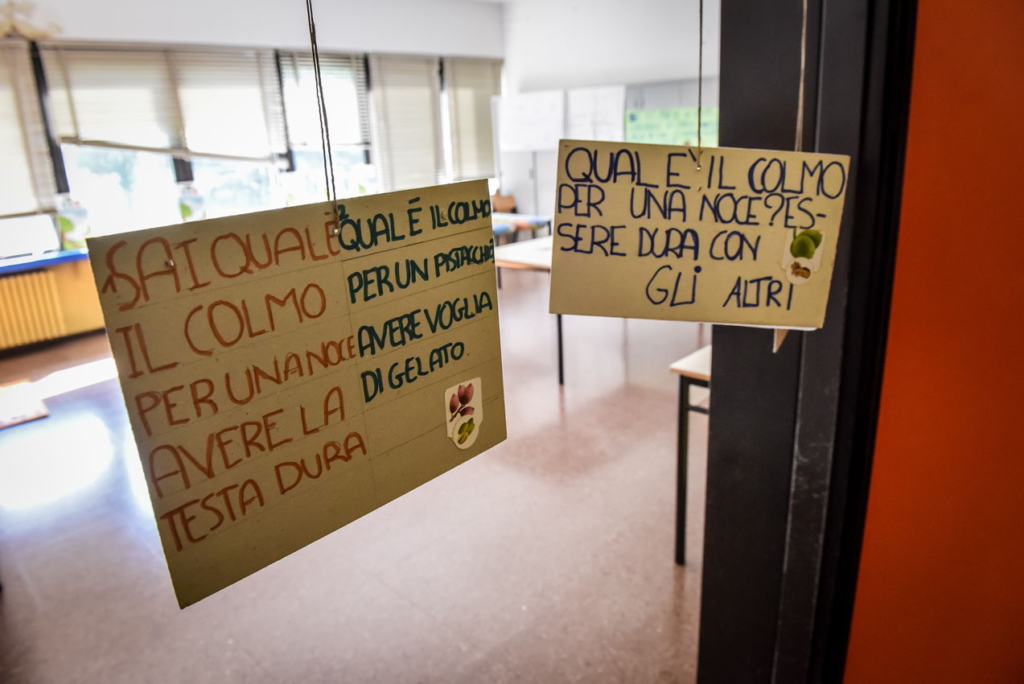 1 SAI QUALE
IL COLMO
PER UNA NOCE
AVERE LA
TESTA DURA
2 QUAL È IL COLMO
PER UN PISTACCHIO?
AVERE VOGLIA
DI GELATO
QUAL È IL COLMO
PER UNA NOCE? ES-
SERE DURA CON
GLI ALTRI